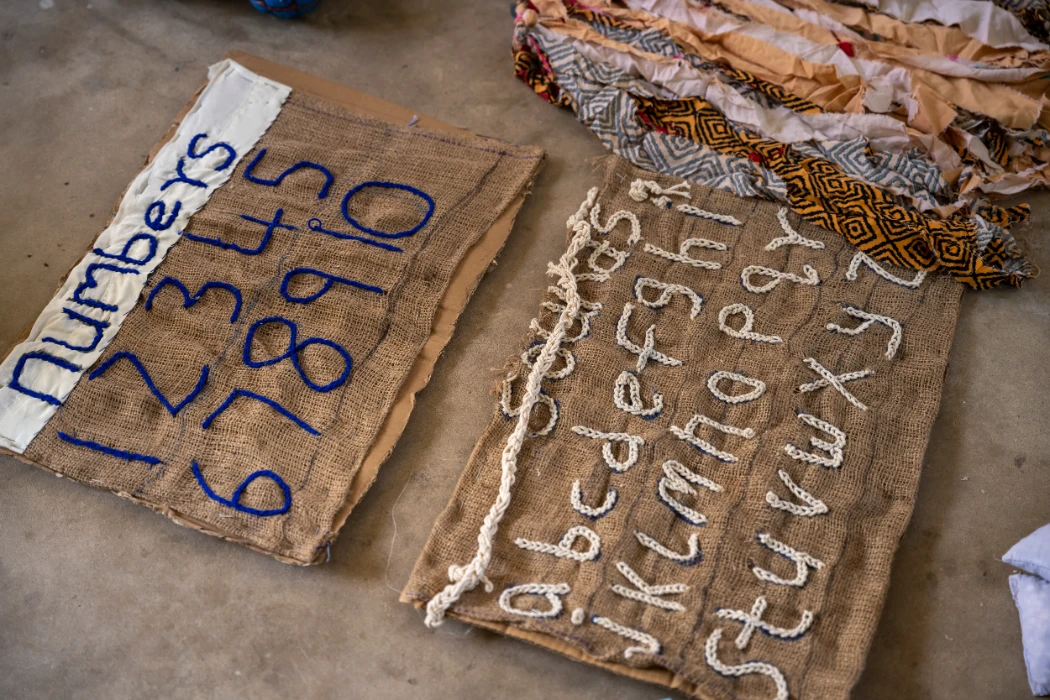 numbers
1 2 3 4 5
6 7 8 9 10
a b c d e f g h i
j k l m n o p q r
s t u v w x y z